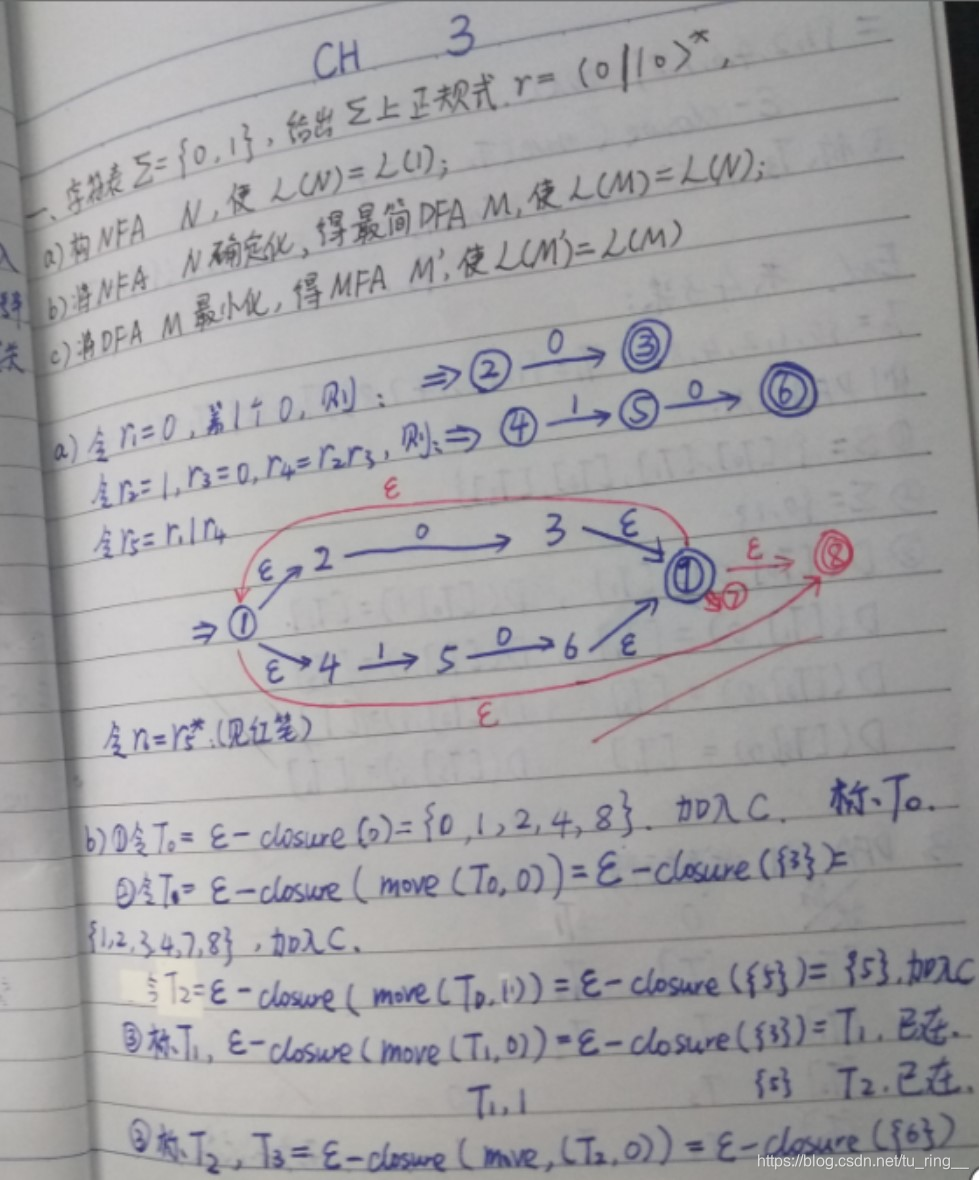 CH 3
一、字符表Σ={0,1},给出Σ上正规式 r=(0|10)*,
a)构NFA N,使L(N)=L(1);
b)将NFA N确定化,得最简DFA M,使L(M)=L(N);
c)将DFA M最小化,得MFA M',使L(M')=L(M)
a)令r₁=0,第1个0,则: ⇒②—0→③
令r₂=1,r₃=0,r₄=r₂r₃,则:⇒④—1→⑤—0→⑥
令r₅=r₁|r₄
ε
ε 2 0 3 ε
⇒① ⑦ ε ⑧
ε 4 1 5 0 6 ε
ε
令r₆=r₅*.(见红笔)
b)①令T₀=ε-closure(0)={0,1,2,4,8}. 加入C. 标、T₀.
②令T₁=ε-closure(move(T₀,0))=ε-closure({3})=
{1,2,3,4,7,8},加入C.
令T₂=ε-closure(move(T₀,1))=ε-closure({5})={5}.加入C
③标、T₁,ε-closure(move(T₁,0))=ε-closure({3})=T₁.已在.
T₁,1 {5} T₂.已在.
③标、T₂,T₃=ε-closure(move,(T₂,0))=ε-closure({6})
https://blog.csdn.net/tu_ring__